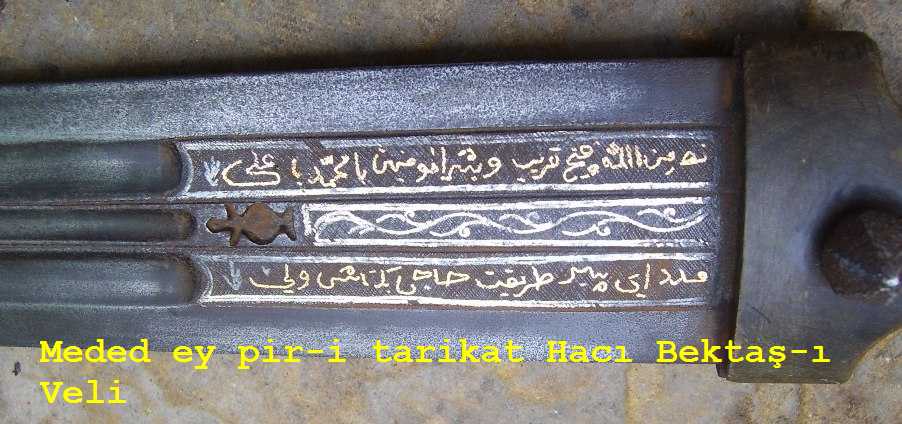 نصر من الله و فتح قريب و بشر المومنين يا محمد يا علي
مدد اي پير طريقت حاجي بكتاش ولي
Meded ey pir-i tarikat Hacı Bektaş-ı
Veli